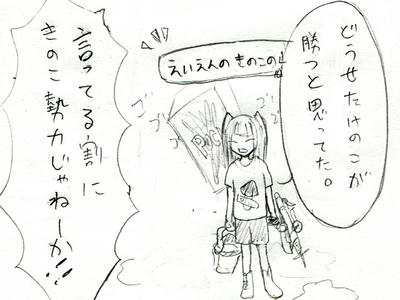 どうせたけのこが
勝つと思ってた。
えいえんのきのこの山
ゴ
ゴ
ゴ
言ってる割に
きのこ勢力じゃねーか!!